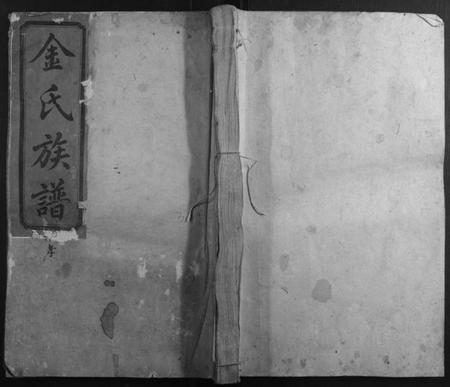 金氏族譜